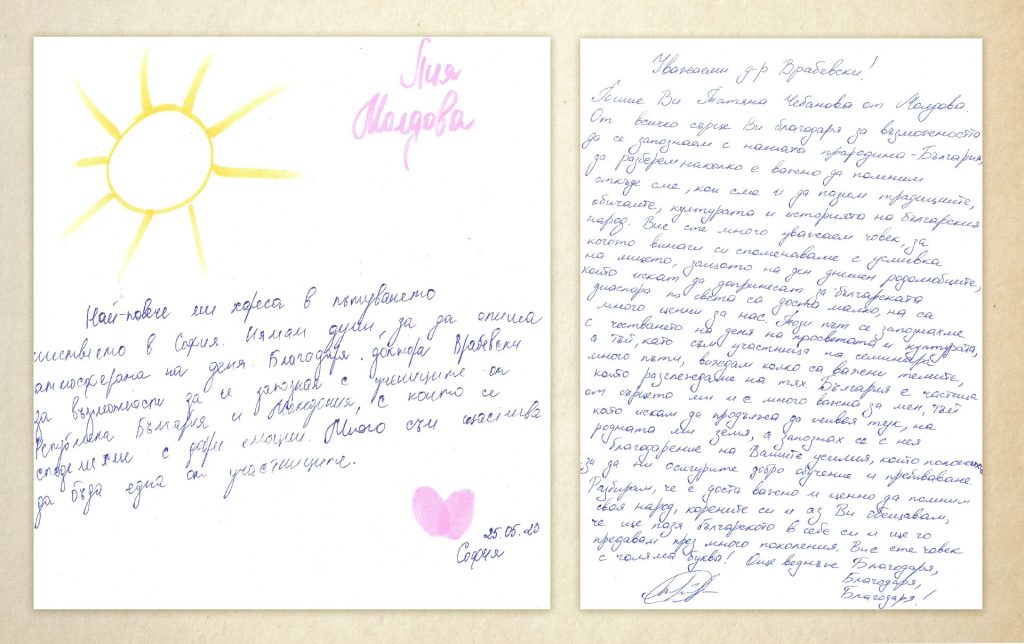 Лия
Молдова
Най-повече ми хареса в пътуването
шествието в София. Нямам думи, за да опиша
атмосферата на деня. Благодаря доктора Врабевски
за възможността да се запозная с учениците от
Република България и Македония, с които се
споделяхме с добри емоции. Много съм щастлива
да бъда една от участниците.
25.05.20
София
Уважаеми д-р Врабевски!
Пише Ви Татяна Чебанова от Молдова.
От всичко сърце Ви благодаря за възможността
да се запознаем с нашата прародина - България,
за разберем наколко е важно да помним
откъде сме, кои сме и да пазем традициите,
обичаите, културата и историята на българския
народ. Вие сте много уважаем човек, за
когото винаги си споменаваме с усмивка
на лицето, защото на ден днешен родолюбците,
които искат да допринесат за българската
диаспора по света са доста малко, на са
много ценни за нас. Този път се запознахме
с честването на деня на просветата и културата,
а тъй, като съм участница на семинара
много пъти, виждам колко са важени темите,
които разглеждаме на тях. България е частица
от сърцето ми и е много важна за мен, тъй
като искам да продължа да живея тук, на
родната ми земя, а запознах се с нея
благодарение на Вашите усилия, които положихте
за да ни осигурите добро обучение и пребиваване.
Разбирам, че е доста важно и ценно да помним
своя народ, корените си и аз Ви обещавам,
че ще пазя българското в себе си и ще го
предавам през много поколения. Вие сте човек
с голяма буква! Още веднъж Благодаря,
Благодаря,
Благодаря!